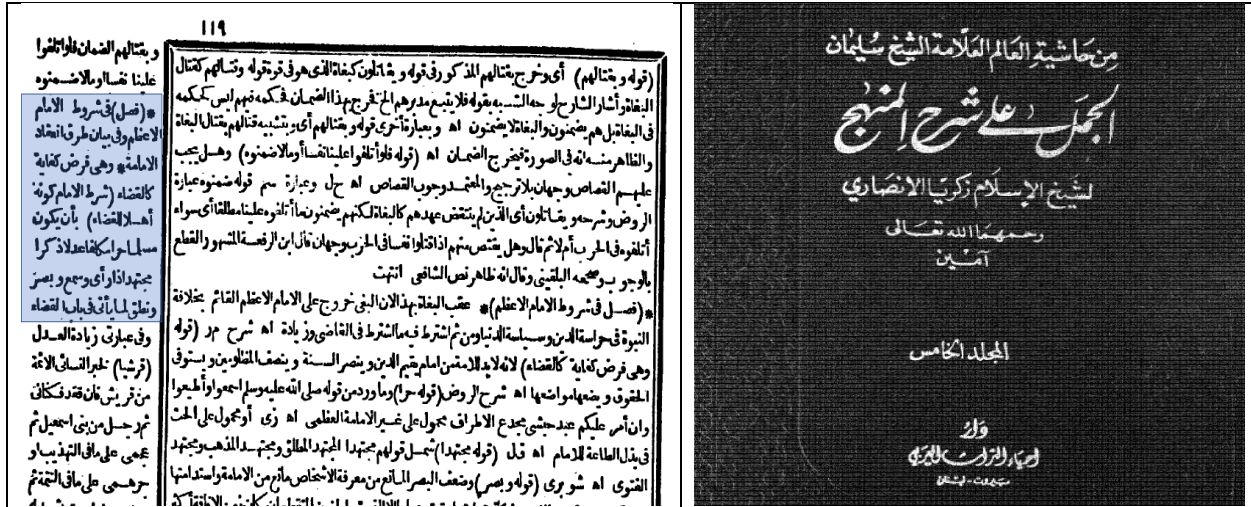 ١١٩
(قوله وبقتالهم) أى وخرج بقتالهم المذكور فى قوله ويقاتلون كبغاة الذى هو فى قوة قوله وقتالهم كقتال
البغاة وأشار الشارح لوجه التشبيه بقوله فلا يتبع مدبرهم الخ فخرج بهذا الضمان فحكمه فيهم ليس كحكمه
فى البغاة بل هم يضمنون والبغاة لا يضمنون اه وبعبارة أخرى قوله وبقتالهم أى وبتشبيه قتالهم بقتال البغاة
والظاهر منه انه فى الصورة فيخرج الضمان اه (قوله فلو أتلفوا علينا نفسا أو مالا ضمنوه) وهل يجب
عليهم القصاص وجهان بلا ترجيح والمعتمد وجوب القصاص اه ح ل وعبارة سم قوله ضمنوه عبارة
الروض وشرحه ويقاتلون أى الذين لم ينتقض عهدهم كالبغاة لكنهم يضمنون ما أتلفوه علينا مطلقا أى سواء
أتلفوه فى الحرب أم لا ثم قال وهل يقتص منهم اذا قتلوا نفسا فى الحرب وجهان قال ابن الرفعة المشهور القطع
بالوجوب وصححه البلقينى وقال انه ظاهر نص الشافعى انتهت
*(فصل فى شروط الامام الاعظم)* عقب البغاة بهذا لان البغى خروج على الامام الاعظم القائم بخلافة
النبوة فى حراسة الدين وسياسة الدنيا ومن ثم اشترط فيه ما اشترط فى القاضى وزيادة اه شرح م ر (قوله
وهى فرض كفاية كالقضاء) لانه لابد للامة من امام يقيم الدين وينصر السنة وينصف المظلومين ويستوفى
الحقوق ويضعها مواضعها اه شرح الروض (قوله حرا) وما ورد من قوله صلى الله عليه وسلم اسمعوا وأطيعوا
وان أمر عليكم عبد حبشى مجدع الاطراف محمول على غير الامامة العظمى اه زى أو محمول على الحث
فى بذل الطاعة للامام اه ق ل (قوله مجتهدا) شمل قولهم مجتهدا المجتهد المطلق ومجتهد المذهب ومجتهد
الفتوى اه شوبرى (قوله وبصر) وضعف البصر المانع من معرفة الاشخاص مانع من الامامة واستدامتها
وبقتالهم الضمان فلو أتلفوا
علينا نفسا أو مالا ضمنوه
*(فصل) فى شروط الامام
الاعظم وفى بيان طرق انعقاد
الامامة* وهى فرض كفاية
كالقضاء (شرط الامام كونه
أهلا للقضاء) بأن يكون
مسلما حرا مكلفا عدلا ذكرا
مجتهدا ذا رأى وسمع وبصر
ونطق لما يأتى فى باب القضاء
وفى عبارتى زيادة العدل
(قرشيا) لخبر النسائى الائمة
من قريش فان فقد فكنانى
ثم رجل من بنى اسمعيل ثم
عجمى على ما فى التهذيب أو
جرهمى على ما فى التتمة ثم
من حاشية العالم العلامة الشيخ سليمان
الجمل على شرح المنهج
لشيخ الإسلام زكريا الانصاري
رحمهما الله تعالى
آمين
المجلد الخامس
دار
احياء التراث العربي
بيروت - لبنان